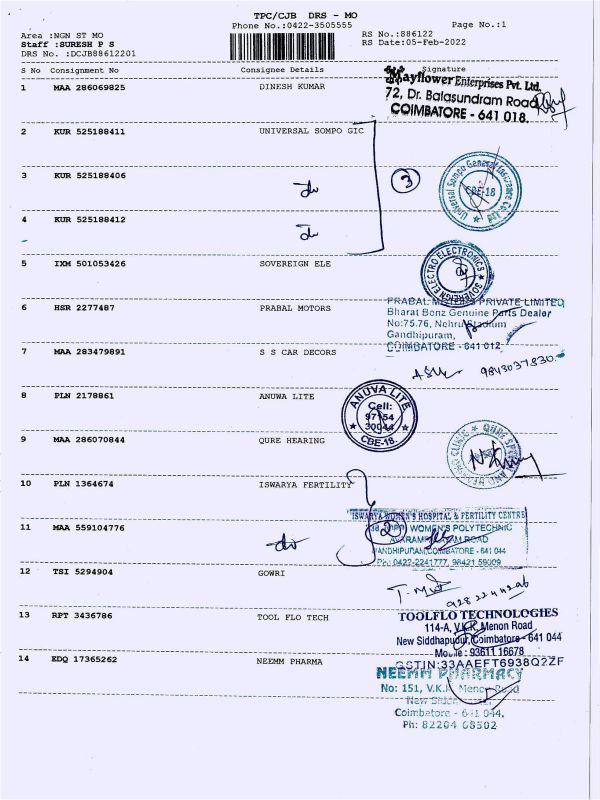 TPC/CJB DRS - MO
Phone No.:0422-3505555
Page No.:1
Area :NGN ST MO
Staff :SURESH P S
DRS No. :DCJB88612201
RS No.:886122
RS Date:05-Feb-2022
S No Consignment No Consignee Details Signature
1 MAA 286069825 DINESH KUMAR
Mayflower Enterprises Pvt. Ltd.
72, Dr. Balasundram Road
COIMBATORE - 641 018.
2 KUR 525188411 UNIVERSAL SOMPO GIC
3 KUR 525188406 do
3
Universal Sompo General Insurance Co.
CBE-18
4 KUR 525188412 do
5 IXM 501053426 SOVEREIGN ELE
SOVEREIGN ELECTRO ELECTRONICS
6 HSR 2277487 PRABAL MOTORS
PRABAL MOTORS PRIVATE LIMITED
Bharat Benz Genuine Parts Dealer
No:75.76, Nehru Stadium
Gandhipuram,
COIMBATORE - 641 012
7 MAA 283479891 S S CAR DECORS
9843037830
8 PLN 2178861 ANUWA LITE
ANUVA LITE
Cell:
97154
30044
CBE-18.
9 MAA 286070844 QURE HEARING
10 PLN 1364674 ISWARYA FERTILITY
ISWARYA WOMEN'S HOSPITAL & FERTILITY CENTRE
2
WOMEN'S POLYTECHNIC
ROAD
GANDHIPURAM, COIMBATORE - 641 044
Ph: 0422-2241777, 98421 59009
11 MAA 559104776 do
12 TSI 5294904 GOWRI
13 RPT 3436786 TOOL FLO TECH
TOOLFLO TECHNOLOGIES
114-A, V.K.R. Menon Road
New Siddhapudur, Coimbatore - 641 044
Mobile : 93611 16678
GSTIN:33AAEFT6938Q2ZF
14 EDQ 17365262 NEEMM PHARMA
NEEMM PHARMACY
No: 151, V.K.K. Menon Road
New
Coimbatore - 641 044.
Ph: 82204 08502